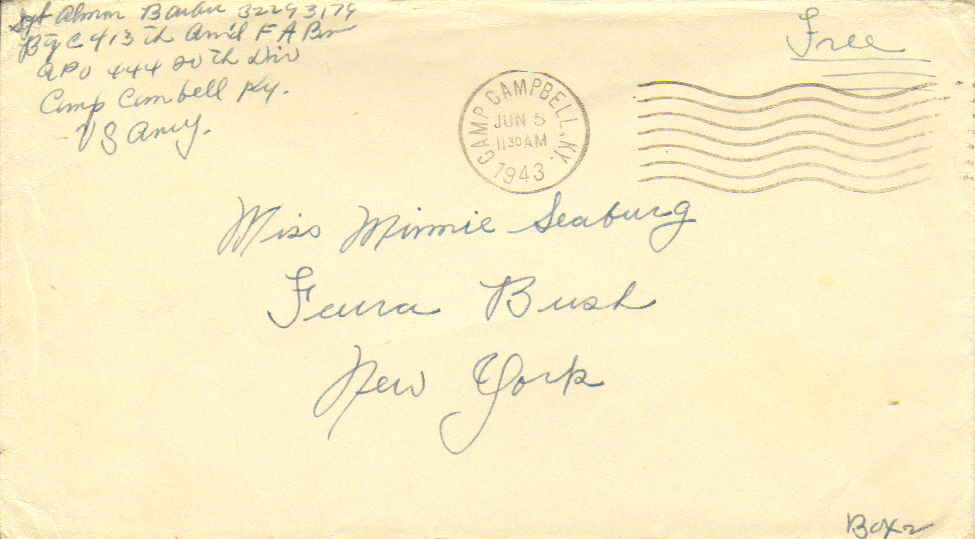 Sgt Almon Barber 32293179
Bty C 413th Arm'd F A Bn
APO 444 20th Div
Camp Cambell Ky.
US Army.
Free
CAMP CAMPBELL, KY.
JUN 5
1130AM
1943
Miss Minnie Seaburg
Feura Bush
New York
Box 2